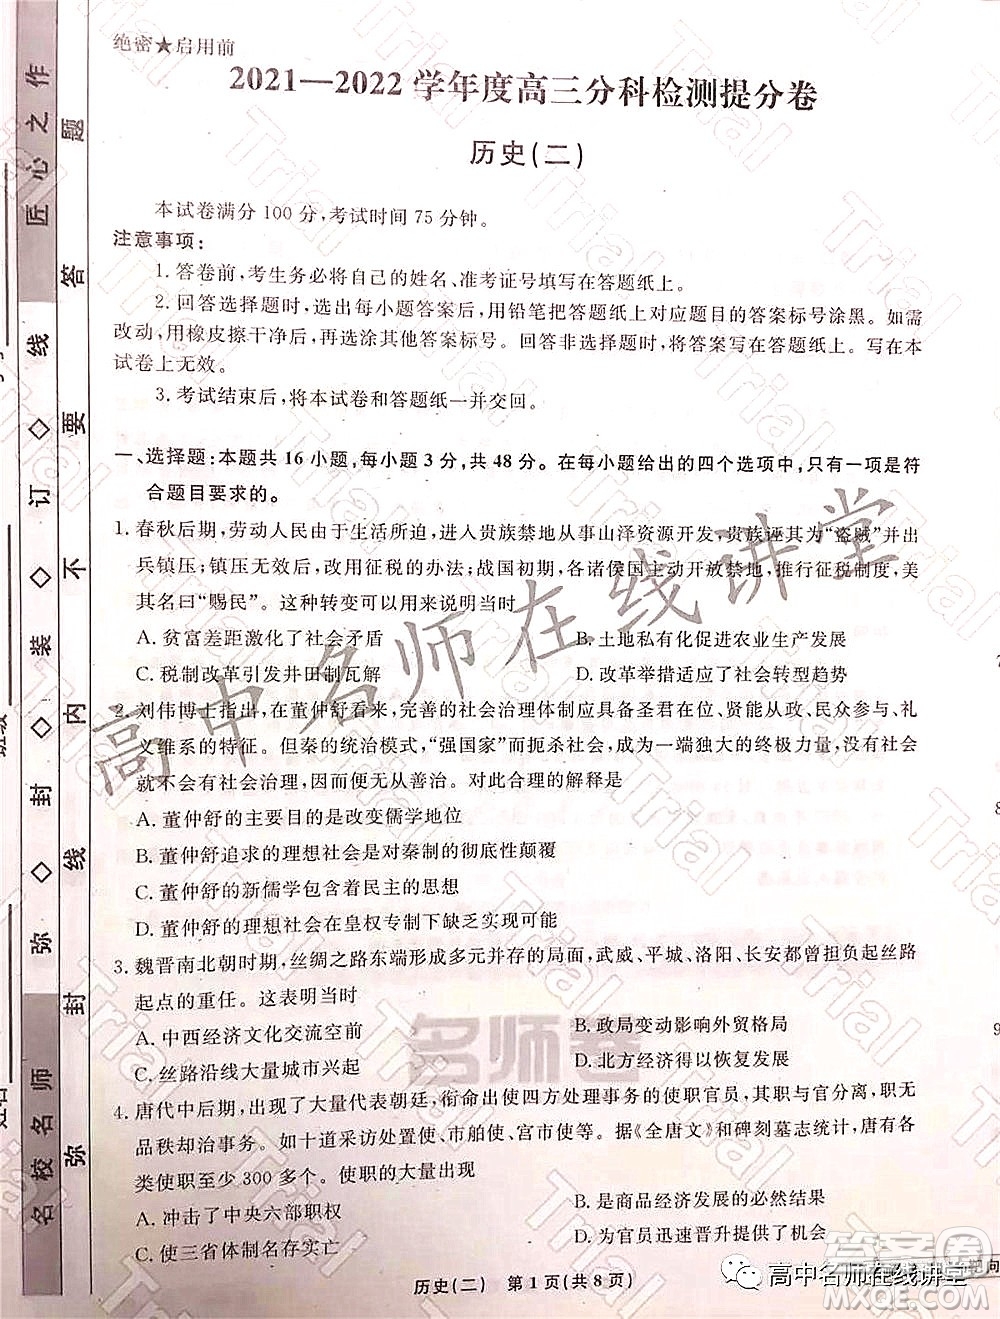 绝密★启用前
2021—2022学年度高三分科检测提分卷
历史(二)
本试卷满分100分,考试时间75分钟。
注意事项:
1. 答卷前,考生务必将自己的姓名、准考证号填写在答题纸上。
2. 回答选择题时,选出每小题答案后,用铅笔把答题纸上对应题目的答案标号涂黑。如需
改动,用橡皮擦干净后,再选涂其他答案标号。回答非选择题时,将答案写在答题纸上。写在本
试卷上无效。
3. 考试结束后,将本试卷和答题纸一并交回。
一、选择题:本题共16小题,每小题3分,共48分。在每小题给出的四个选项中,只有一项是符
合题目要求的。
1. 春秋后期,劳动人民由于生活所迫,进入贵族禁地从事山泽资源开发,贵族诬其为“盗贼”并出
兵镇压;镇压无效后,改用征税的办法;战国初期,各诸侯国主动开放禁地,推行征税制度,美
其名曰“赐民”。这种转变可以用来说明当时
A. 贫富差距激化了社会矛盾
B. 土地私有化促进农业生产发展
C. 税制改革引发井田制瓦解
D. 改革举措适应了社会转型趋势
2. 刘伟博士指出,在董仲舒看来,完善的社会治理体制应具备圣君在位、贤能从政、民众参与、礼
义维系的特征。但秦的统治模式,“强国家”而扼杀社会,成为一端独大的终极力量,没有社会
就不会有社会治理,因而便无从善治。对此合理的解释是
A. 董仲舒的主要目的是改变儒学地位
B. 董仲舒追求的理想社会是对秦制的彻底性颠覆
C. 董仲舒的新儒学包含着民主的思想
D. 董仲舒的理想社会在皇权专制下缺乏实现可能
3. 魏晋南北朝时期,丝绸之路东端形成多元并存的局面,武威、平城、洛阳、长安都曾担负起丝路
起点的重任。这表明当时
A. 中西经济文化交流空前
B. 政局变动影响外贸格局
C. 丝路沿线大量城市兴起
D. 北方经济得以恢复发展
4. 唐代中后期,出现了大量代表朝廷,衔命出使四方处理事务的使职官员,使职官员没有
品秩却治事务。如十道采访处置使、市舶使、宫市使等。据《全唐文》和碑刻墓志统计,唐代
使职至少300多个。使职的大量出现
A. 冲击了中央六部职权
B. 是商品经济发展的必然结果
C. 使三省体制名存实亡
D. 为官员迅速晋升提供了机会
历史(二) 第1页(共8页)
匠心之作
名校名师
弥 封 装 订 线
弥 封 线 内 不 要 答 题
高中名师在线讲堂
名师卷
高中名师在线讲堂
答案圈
MXQE.COM
Trial